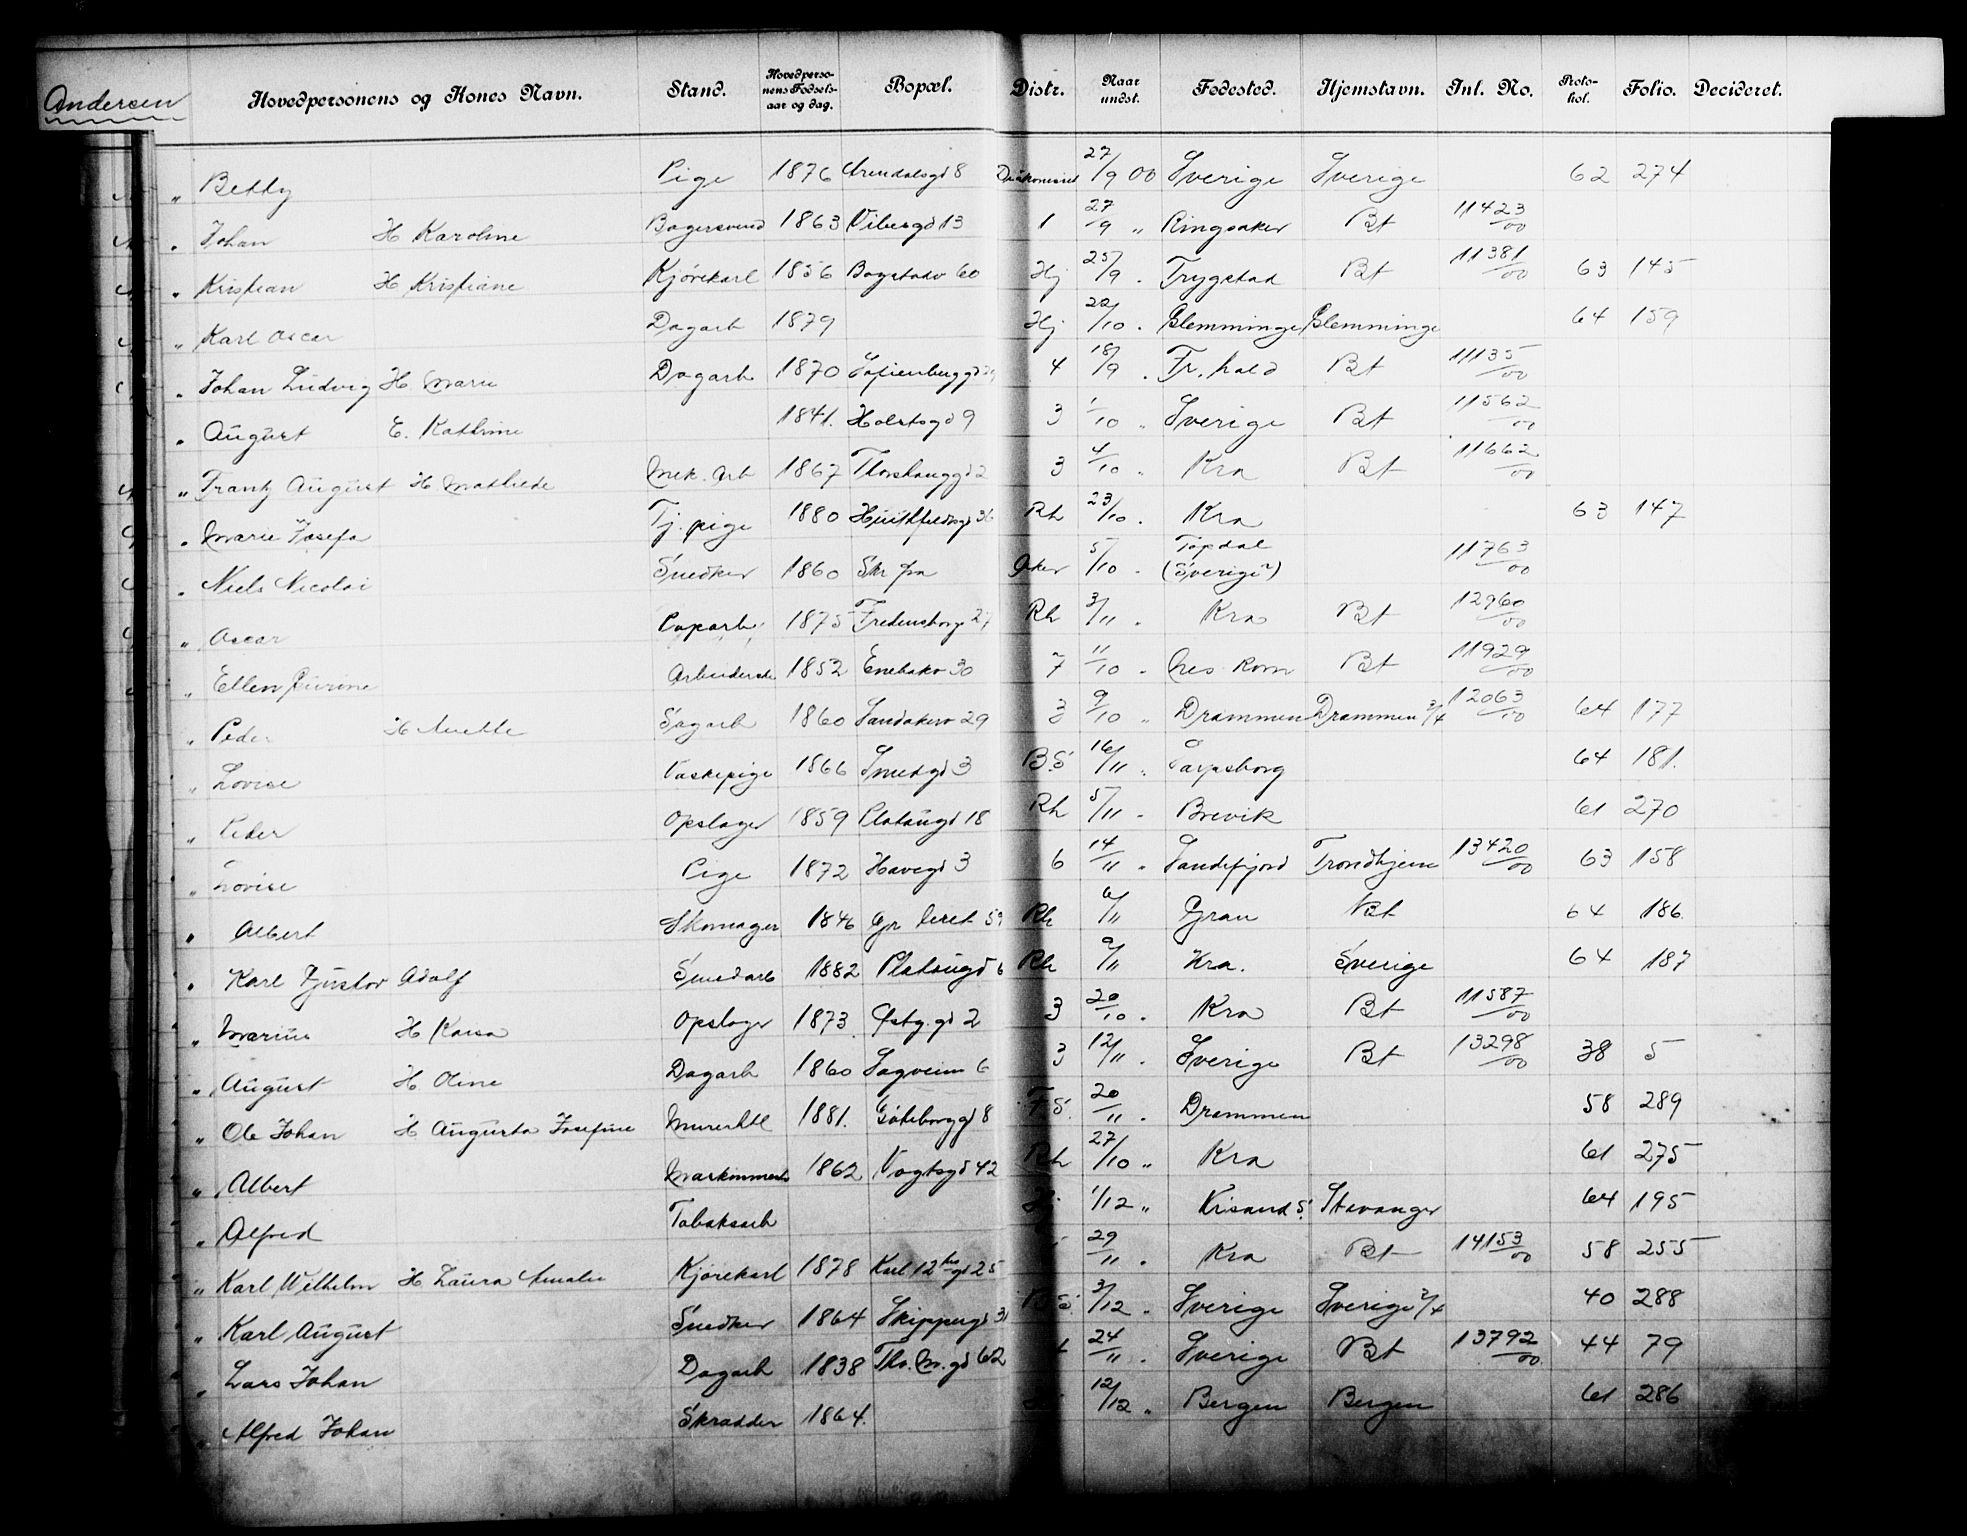 Andersen Hovedpersonens og Kones Navn. Stand. Hovedperso-nens Fødsels-aar og dag. Bopæl. Distr. Naar undst. Fødested. Hjemstavn. Inl. No. Proto-kol. Folio. Decideret.
" Betty Pige 1876 Arendalsgd 8 Diakonissel 27/9 00 Sverige Sverige 62 274
" Johan H Karoline Bagersvend 1863 Vibesgd 13 1 27/9 " Ringsaker Bt 11423/00
" Kristian H Kristiane Kjørekarl 1856 Bogstadv 60 Hj 25/9 " Trygstad Bt 11381/00 63 145
" Karl Oscar Dagarb 1879 Hj 22/10 " Glemminge Glemminge 64 159
" Johan Ludvig H Marie Dagarb 1870 Sofienberggd 4 18/9 " Fr.hald Bt 11135/00
" August E. Kathrine 1841. Holstsgd 9 3 1/10 " Sverige Bt 11562/00
" Frantz August H Mathilde Mek. Arb 1867 Thorshauggd 2 3 4/10 " Kra Bt 11662/00
" Marie Josefa Tj. pige 1880 Huitfeldtsgd 36 Rh 23/10 " Kra 63 147
" Niels Nicolai Snedker 1860 Skr fra Aker 5/10 " Topdal (Sverige?) 11763/00
" Oscar Paparb. 1875 Fredensborg 27 Rh 3/11 " Kra Bt 12960/00
" Ellen Gurine Arbeiderske 1852 Enebakv 30 7 11/10 " Nes Rom Bt 11929/00
" Peder H Anette Sagarb 1860 Sandakerv 29 3 9/10 " Drammen Drammen 2/4 12063/00 64 177
" Lovise Vaskepige 1866 Smedgd 3 B.S 16/11 " Sarpsborg 64 181.
" Peder Opslager 1859 Platougd 18 Rh 5/11 " Brevik 61 270
" Lovise Pige 1872 Havegd 3 6 14/11 " Sandefjord Trondhjem 13420/00 63 158
" Albert Skomager 1846 Gr leret 59 Rh 6/11 Gran Bt 64 186.
" Karl Gustav Adolf Smedarb 1882 Platougd 6 Rh 9/11 Kra. Sverige 64 187
" Marius H Kaisa Opslager 1873. Østg. gd 2 3 20/10 " Kra Bt 11587/00
" August H Oline Dagarb 1860 Sagveien 6 3 12/11 " Sverige Bt 13298/00 38 5
" Ole Johan H Augusta Josefine Murerhdl 1881. Gøteborggd 8 F.S. 20/11 " Drammen 58 289
" Albert 1862 Vogtsgd 42 Rh 27/10 " Kra 61 275
" Alfred Tobaksarb Hj 1/12 " Krisand S. Stavanger 64 195
" Karl Wilhelm H Laura Amalie Kjørekarl 1878 Karl 12tes gd 25 29/11 " Kra Bt 14153/00 58 255
" Karl August Snedker 1864 Skippergd 31 B.S. 3/12 " Sverige Sverige 2/4 40 288
" Lars Johan Dagarb 1838 Th. M. gd 62 24/11 " Sverige Bt 13792/00 44 79
" Alfred Johan Skrædder 1864. 12/12 " Bergen Bergen 61 286